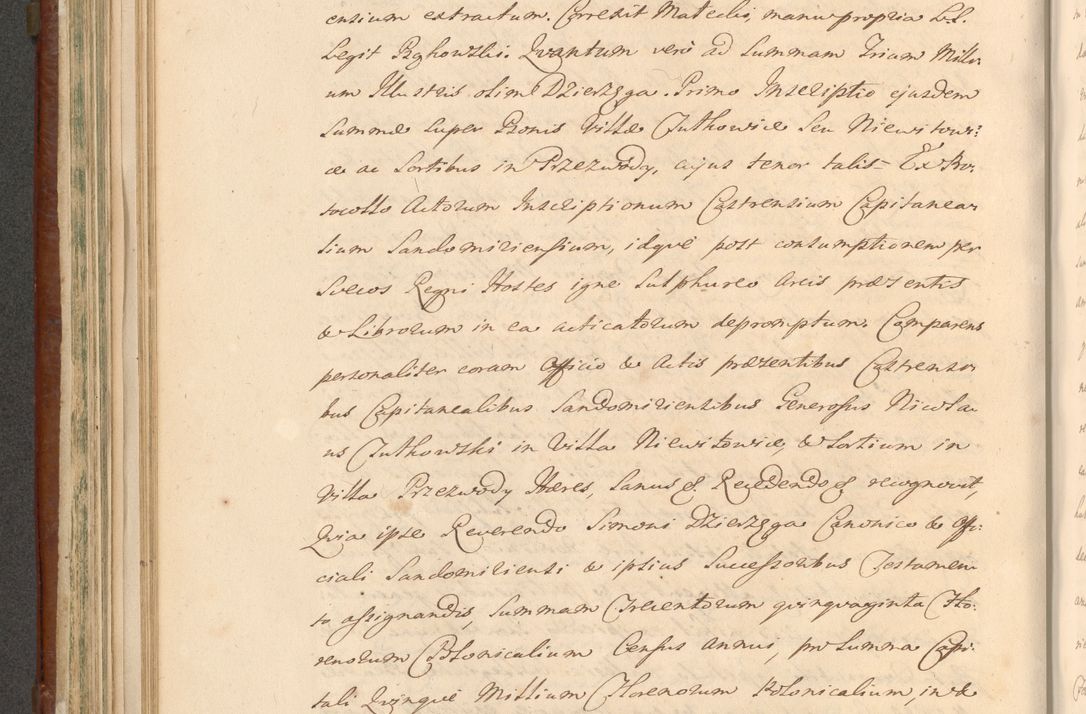 ensium extractum. Correxit Matecki, manu propria L.S.
Legit Rghowski. Qvantum verò ad Summam Trium Milli-
um Illustris olim Dzierzga. Primo Inscriptio ejusdem
Summæ super Bonis Villæ Jutkowice Seu Niewitowi:
ce ac Sortibus in Przezwody, cujus tenor talis - Ex Pro-
tocollo Actorum Inscriptionum Castrensium Capitanea-
lium Sandomiriensium, idqvè post consumptionem per
Svecos Regni Hostes igne Sulphureo Arcis præsentis
& Librorum in ea acticatorum depromptum. Comparens
personaliter coram Officio & Actis præsentibus Castrensi-
bus Capitanealibus Sandomiriensibus Generosus Nicola-
us Jutkowski in Villa Niewitowice, & Sortium in
Villa Przezwody Hæres, Sanus &. Recedendo &. recognovit,
Qvia ipse Reverendo Simoni Dzierzga Canonico & Offi-
ciali Sandomiriensi & ipsius Successoribus Testamen-
to assignandis, Summam Trecentorum qvinqvaginta Flo-
renorum Polonicalium Census annui, pro Summa Capi-
tali Qvinqvè Millium Florenorum Polonicalium, in &